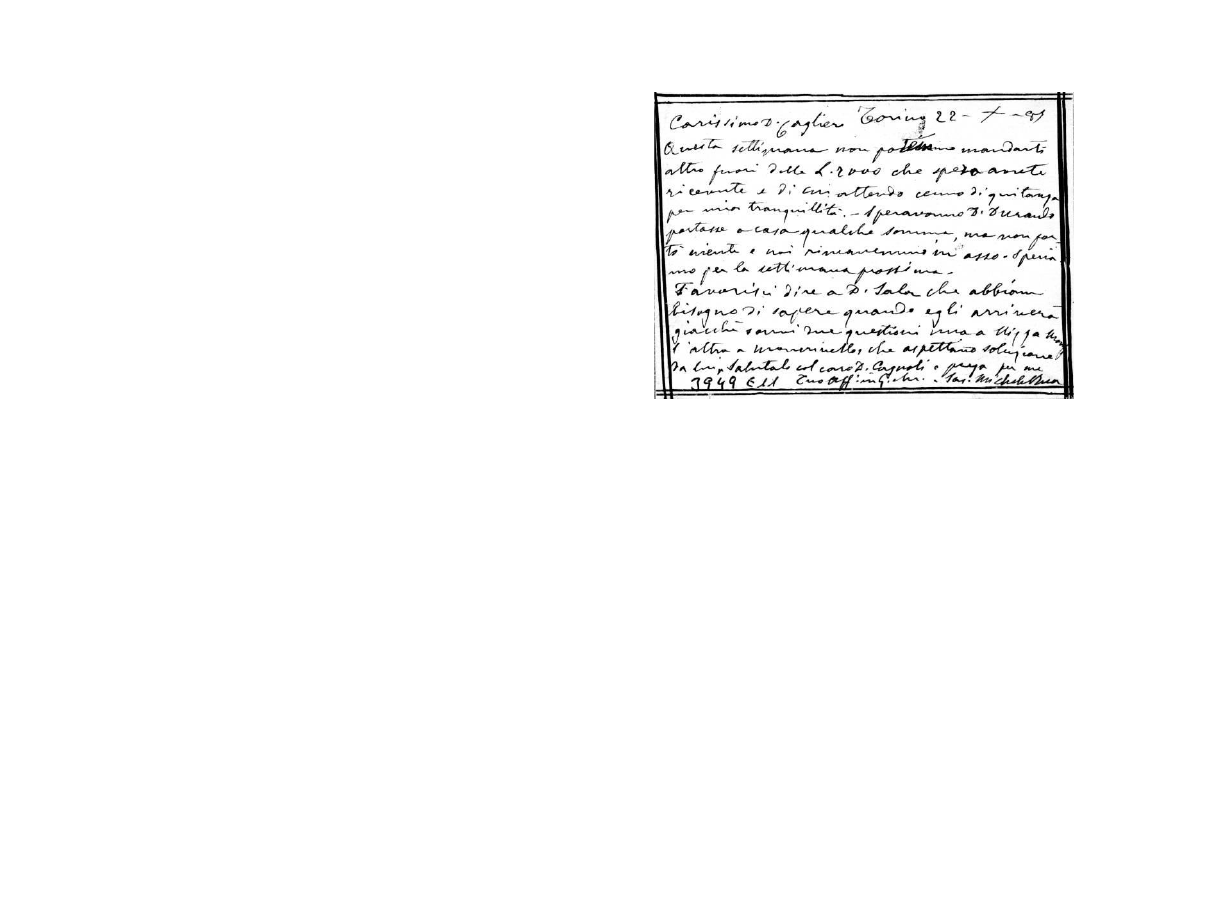 Carissimo D. Cagliero Torino 22 - X - 91
Questa settimana non potemmo mandarti
altro fuori delle L. 2000 che spero avrete
ricevute e di cui attendo cenno di quitanza
per mia tranquillità. - Speravamo D. Durando
portasse a casa qualche somma, ma non por-
tò niente e noi rimanemmo in asso. Speria
mo per la settimana prossima.
Favorisci dire a D. Sala che abbiam
bisogno di sapere quando egli arriverà
giacchè sonvi due questioni una a Nizza Monf
l'altra a che aspettano soluzione
da lui. Salutalo col caro D. Cagnoli e prega per me
3949 Tuo Aff. in G. Sac. Michele Rua